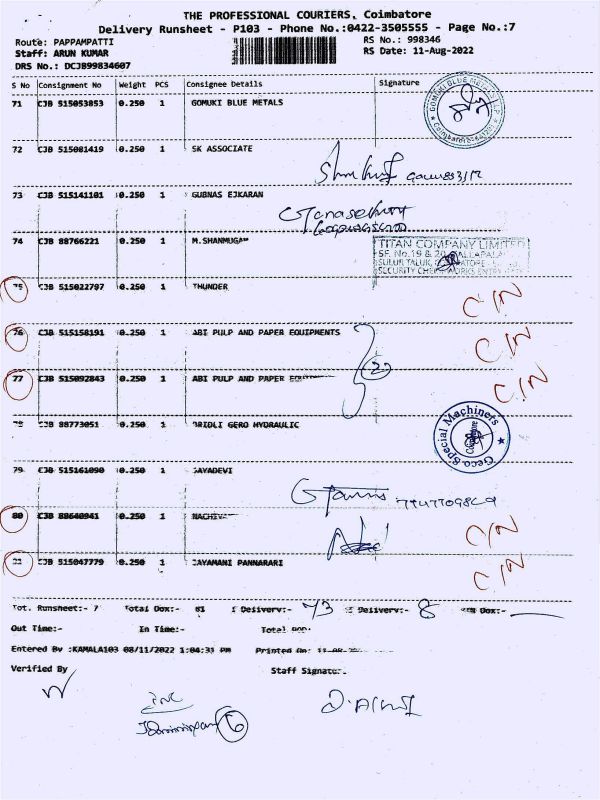 THE PROFESSIONAL COURIERS, Coimbatore
Delivery Runsheet - P103 - Phone No.:0422-3505555 - Page No.:7
Route: PAPPAMPATTI
RS No.: 998346
Staff: ARUN KUMAR
RS Date: 11-Aug-2022
DRS No.: DCJB99834607
S No Consignment No Weight PCS Consignee Details Signature
71 CJB 515053853 0.250 1 GOMUKI BLUE METALS
GOMUKI BLUE METALS LLP
72 CJB 515081419 0.250 1 SK ASSOCIATE
73 CJB 515141101 0.250 1 GUBNAS EJKARAN
74 CJB 88766221 0.250 1 M.SHANMUGAM
TITAN COMPANY LIMITED
SF. No.19 & 20,
SULUR TALUK,
75 CJB 515022797 0.250 1 THUNDER
C/N
76 CJB 515158191 0.250 1 ABI PULP AND PAPER EQUIPMENTS
C/N
2
77 CJB 515092843 0.250 1 ABI PULP AND PAPER
C/N
78 CJB 88773051 0.250 1 GERO HYDRAULIC
Geco Special Machiners
Coimbatore
79 CJB 515161090 0.250 1 JAYADEVI
80 CJB 88640941 0.250 1
C/N
81 CJB 515047779 0.250 1 JAYAMANI PANNARARI
C/N
Tot. Runsheet:- 7 Total Dox:- 81 Delivery:- 73 Delivery:- 8 Dox:-
Out Time:- In Time:- Total
Entered By :KAMALA103 08/11/2022 1:04:33 PM Printed On:
Verified By Staff Signatur